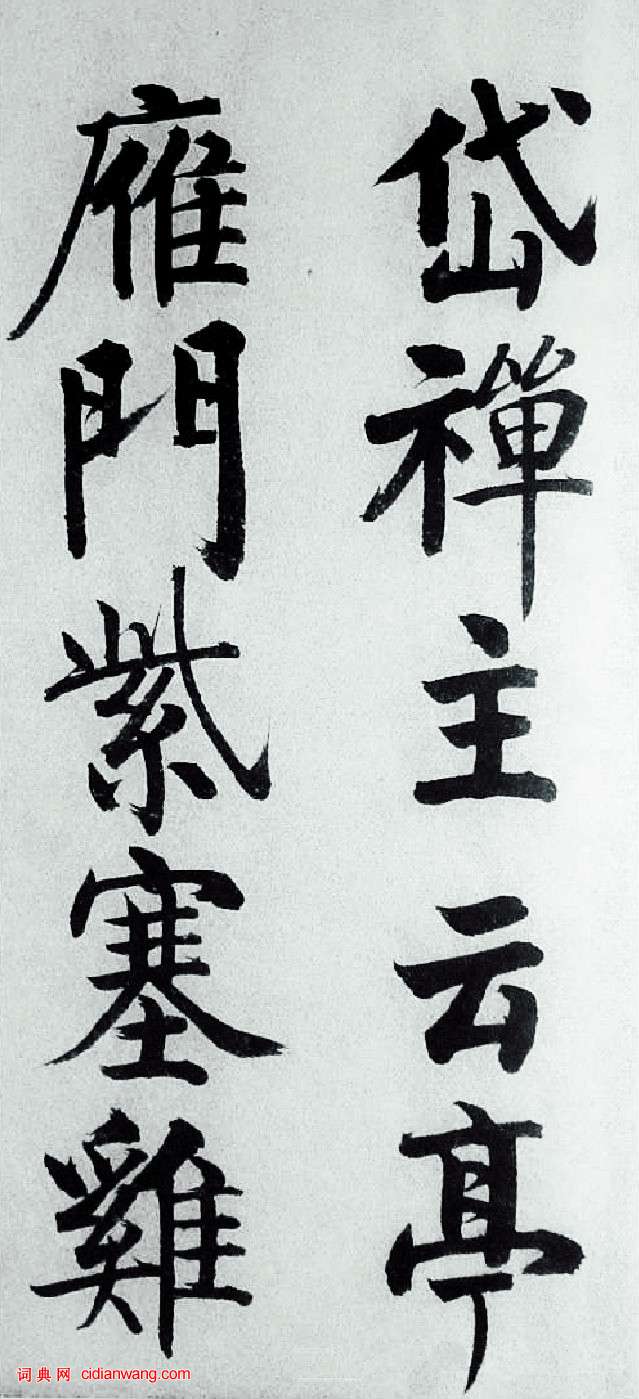 岱禪主云亭
雁門紫塞雞
词典网 cidianwang.com